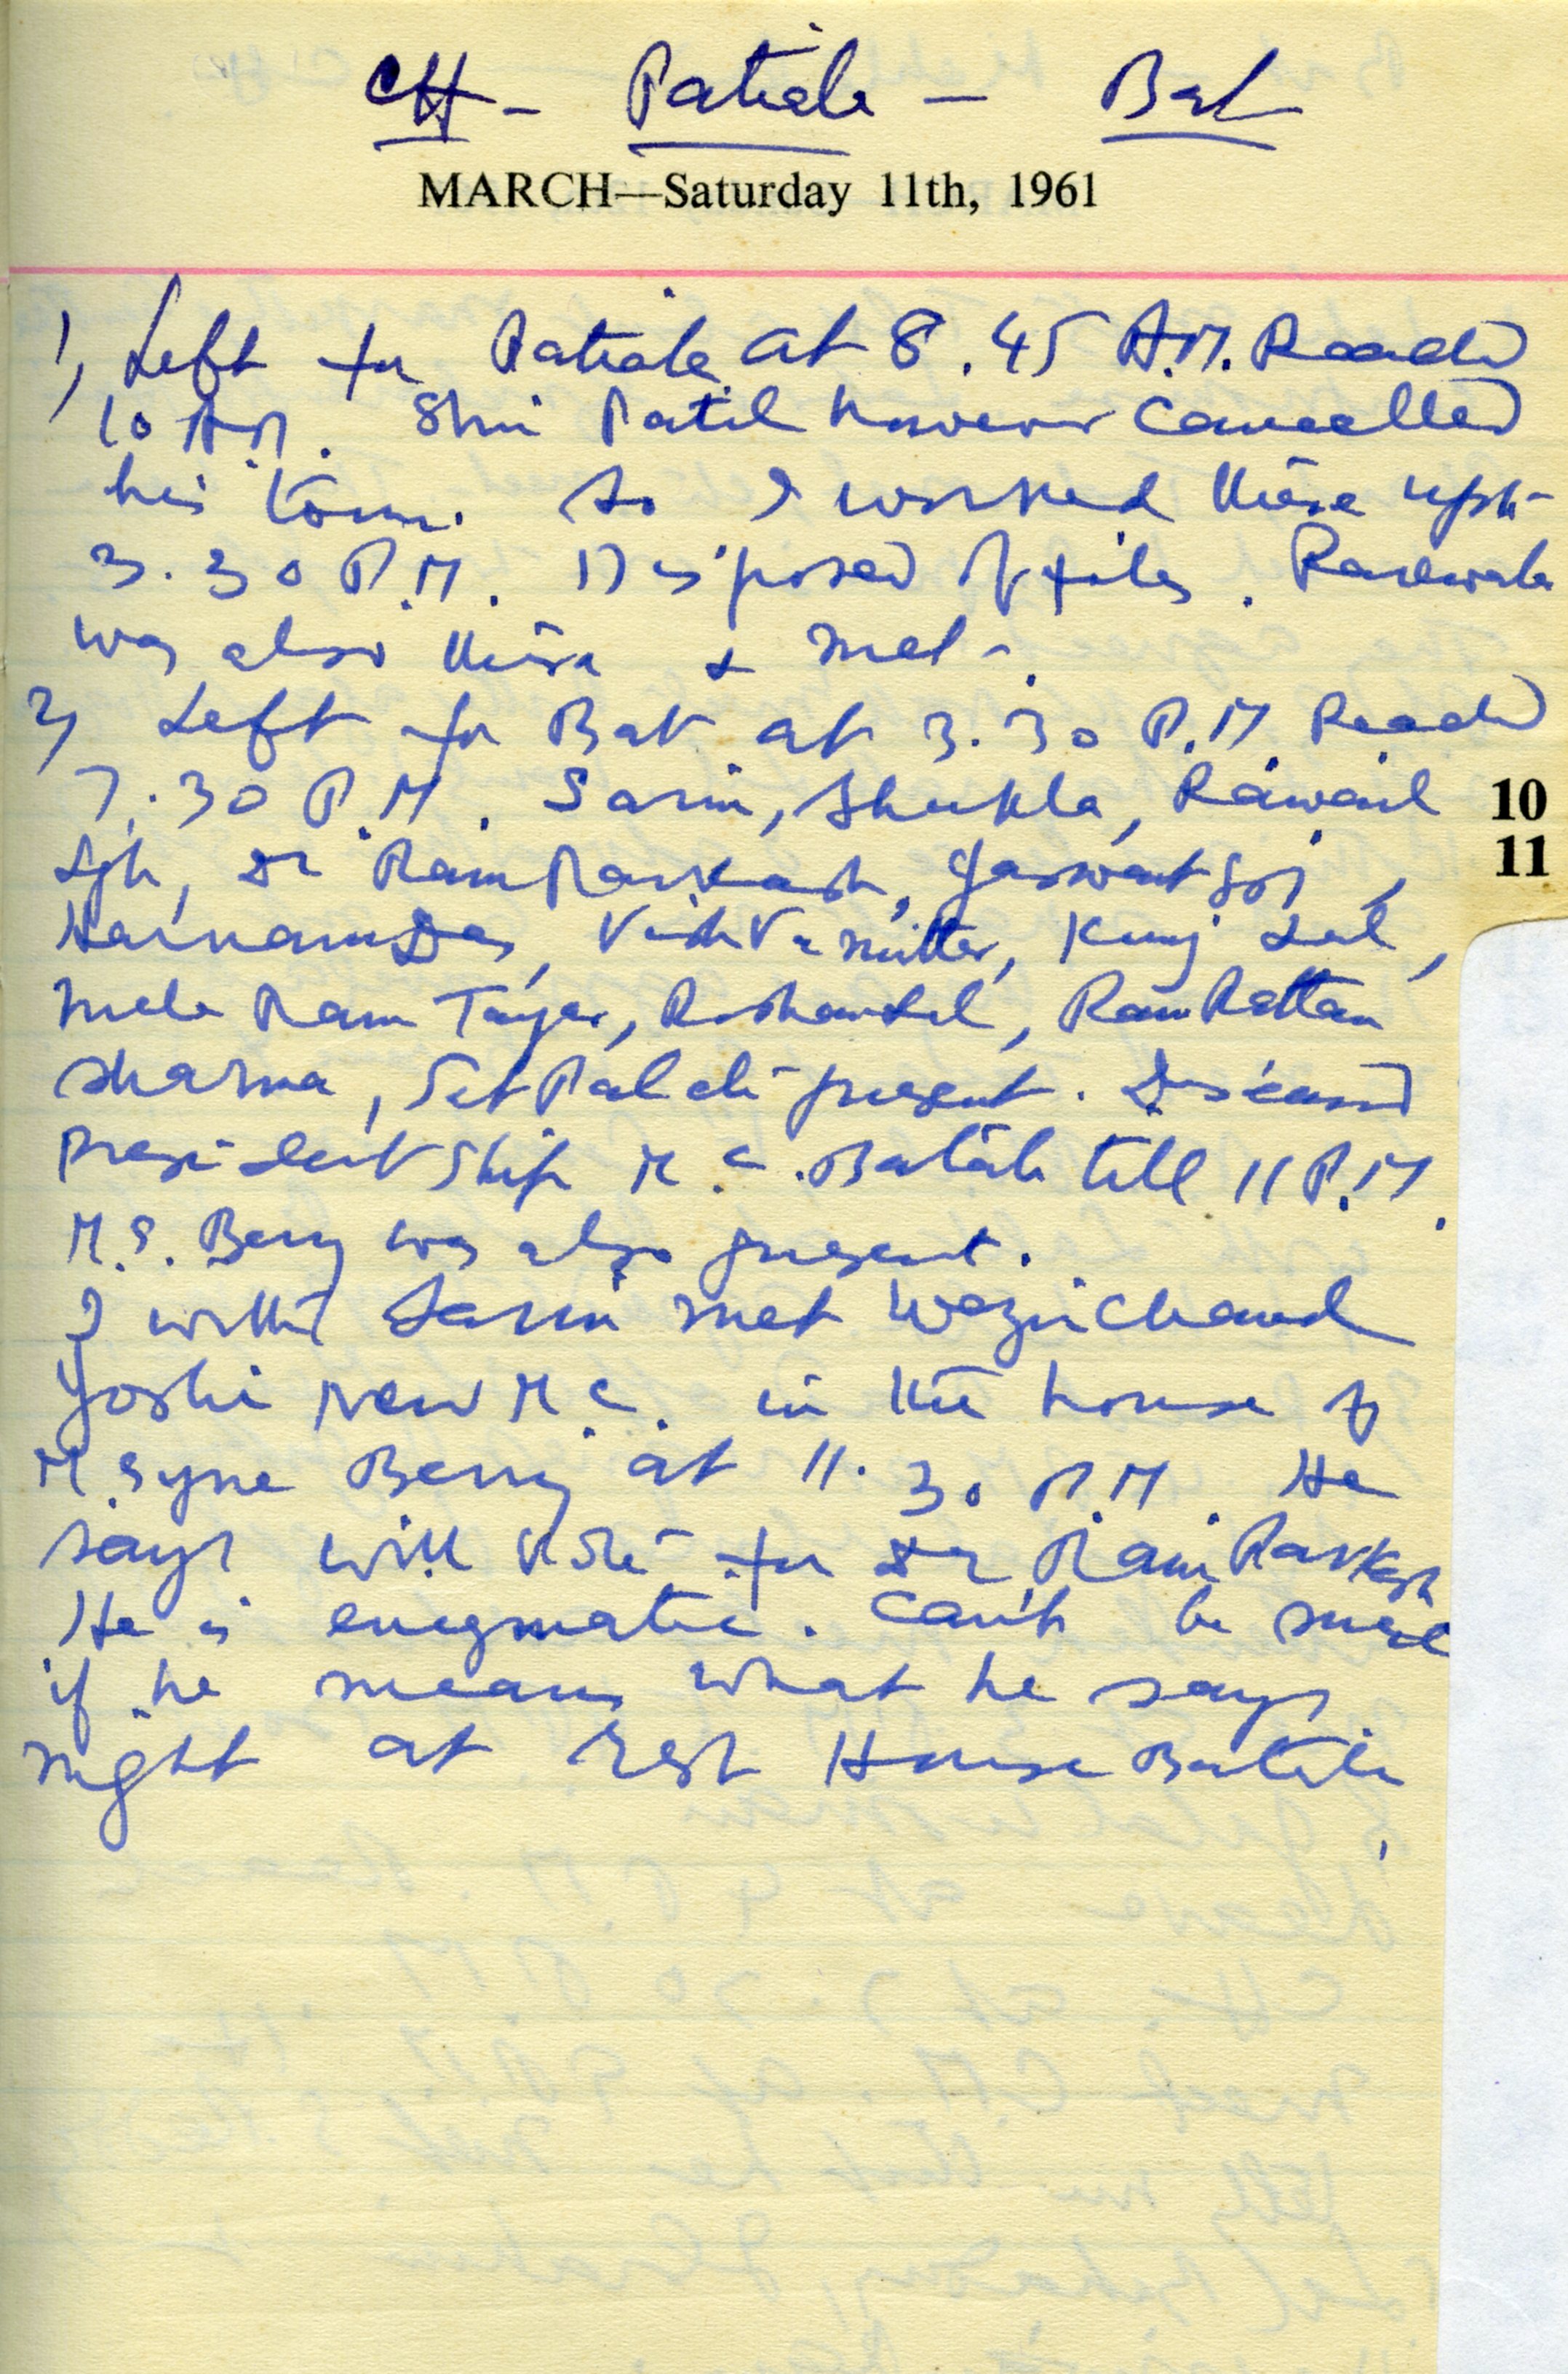 CH - Patiala - Bat
MARCH—Saturday 11th, 1961
1) Left for Patiala at 8.45 A.M. Reached
10 A.M. Shri Patil however cancelled
his tour. So I worked there upto
3.30 P.M. Disposed of files. Rarewala
was also there & met.
2) Left for Bat at 3.30 P.M. Reached
7.30 P.M. Sarin, Shukla, Rawail
10
Sgh, Dr Ram Parkash, Jaswant
11
Harnam Das, Vishva Mitter, Kunj Lal,
Mela Ram Tayer, Roshan Lal, Ram Rattan
Sharma, Sat Pal etc present. Discussed
Presidentship M.C. Batala till 11 P.M.
M.S. Bery was also present.
I with Sarin met Wazir Chand
Joshi New M.C. in the house of
M. Berry at 11.30 P.M. He
says will vote for Dr Ram Parkash
He is enigmatic. Can't be sure
if he means what he says
night at Rest House Batala